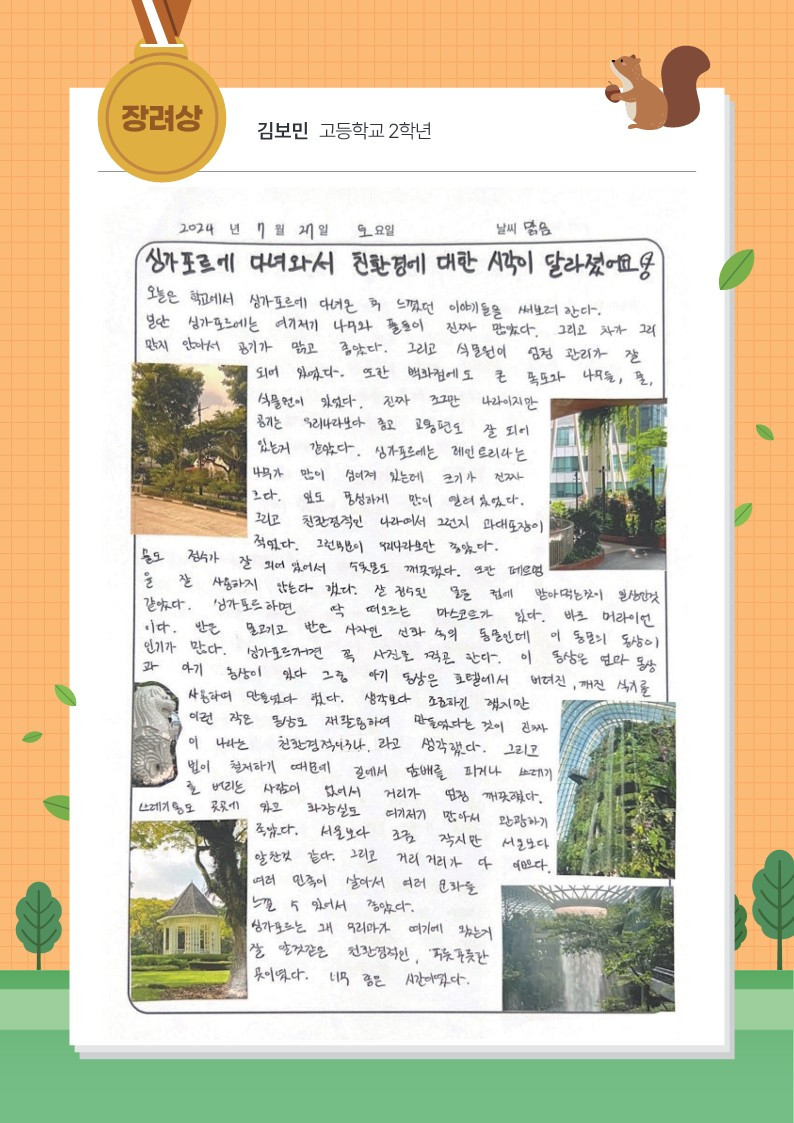 장려상
김보민 고등학교 2학년
2024 년 7 월 27 일 토 요일 날씨 맑음
싱가포르에 다녀와서 친환경에 대한 시각이 달라졌어요
오늘은 학교에서 싱가포르에 다녀온 후 느꼈던 이야기들을 써보려 한다.
일단 싱가포르에는 여기저기 나무와 풀들이 진짜 많았다. 그리고 차가 그리
많지 않아서 공기가 맑고 좋았다. 그리고 식물원이 엄청 관리가 잘
되어 있었다. 또한 백화점에도 큰 폭포와 나무들, 풀,
식물원이 있었다. 진짜 조그만 나라이지만
공기는 우리나라보다 좋고 교통편도 잘 되어
있는거 같았다. 싱가포르에는 레인트리라는
나무가 많이 심어져 있는데 크기가 진짜
크다. 잎도 풍성하게 많이 열려 있었다.
그리고 친환경적인 나라여서 그런지 과대포장이
적었다. 그런부분이 우리나라보단 좋았다.
물도 정수가 잘 되어 있어서 수돗물도 깨끗했다. 또한 페트병
을 잘 사용하지 않는다 했다. 잘 정수된 물을 컵에 받아먹는것이 일상인것
같았다. 싱가포르하면 딱 떠오르는 마스코트가 있다. 바로 머라이언
이다. 반은 물고기고 반은 사자인 신화 속의 동물인데 이 동물의 동상이
인기가 많다. 싱가포르가면 꼭 사진을 찍고 한다. 이 동상은 엄마 동상
과 아기 동상이 있다 그중 아기 동상은 호텔에서 버려진, 깨진 식기를
사용하여 만들었다 했다. 생각보다 소소하긴 했지만
이런 작은 동상도 재활용하여 만들었다는 것이 진짜
이 나라는 친환경적이구나, 라고 생각했다. 그리고
법이 철저하기 때문에 길에서 담배를 피거나 쓰레기
를 버리는 사람이 없어서 거리가 엄청 깨끗했다.
쓰레기통도 곳곳에 있고 화장실도 여기저기 많아서 관광하기
좋았다. 서울보다 조금 작지만 서울보다
알찬것 같다. 그리고 거리 거리가 다 예쁘다.
여러 민족이 살아서 여러 문화를
느낄 수 있어서 좋았다.
싱가포르는 왜 우리가 여기에 왔는거
잘 알것같은 친환경적인, 푸릇푸릇한
곳이였다. 너무 좋은 시간이였다.